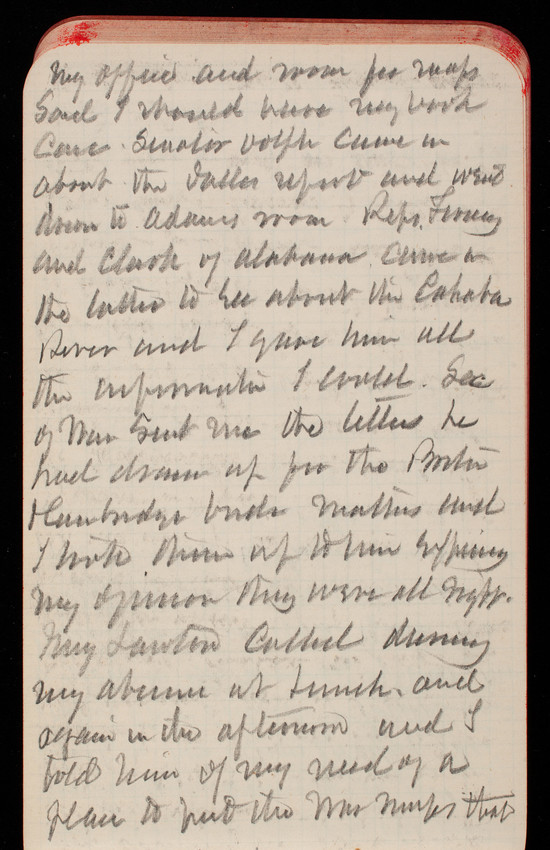 my office and room for maps
Said I should have my book
Case. Senator Dolph came in
about the Dalles report and went
down to Adams room. Reps. Forney
and Clark of Alabama came in
the latter to see about the Cahaba
River and I gave him all
the information I could. Sec
of War sent me the letters he
had drawn up for the Boston
Cambridge bridge matter and
I took them up to him expressing
my opinion they were all right.
Maj Lawton called during
my absence at lunch and
again in the afternoon and I
told him of my need of a
place to put the War maps that